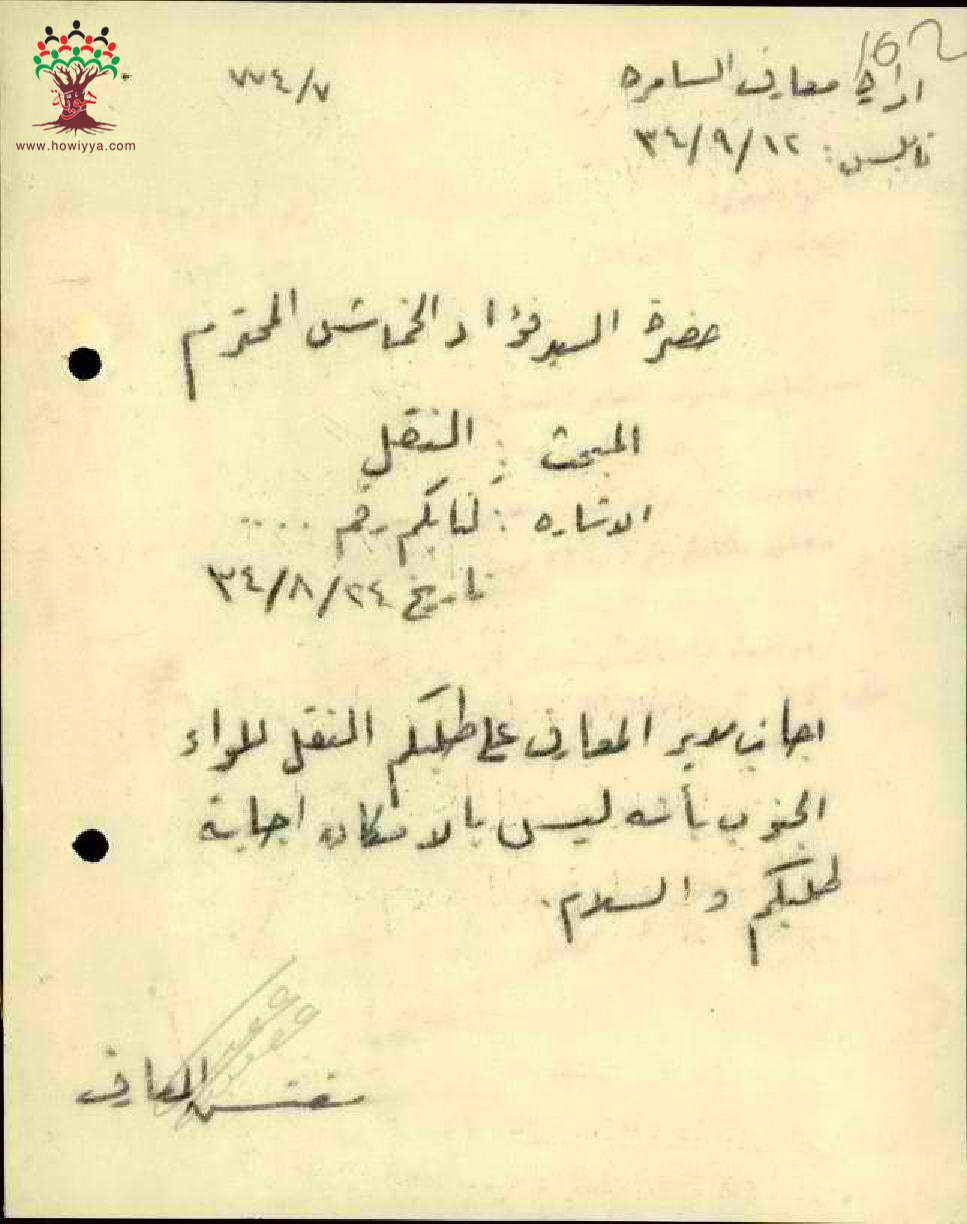 162
ادارة معارف السامره
٧٧٤/٧
نابلس: ١٢/٩/٣٤
هوية
www.howiyya.com
حضرة السيد فؤاد الخماش المحترم
المبحث : النقل
الاشاره : كتابكم رقم ....
تاريخ ٢٤/٨/٣٤
اجاب مدير المعارف على طلبكم النقل للواء
الجنوب بأنه ليس بالامكان اجابة
طلبكم والسلام.
مفتش المعارف